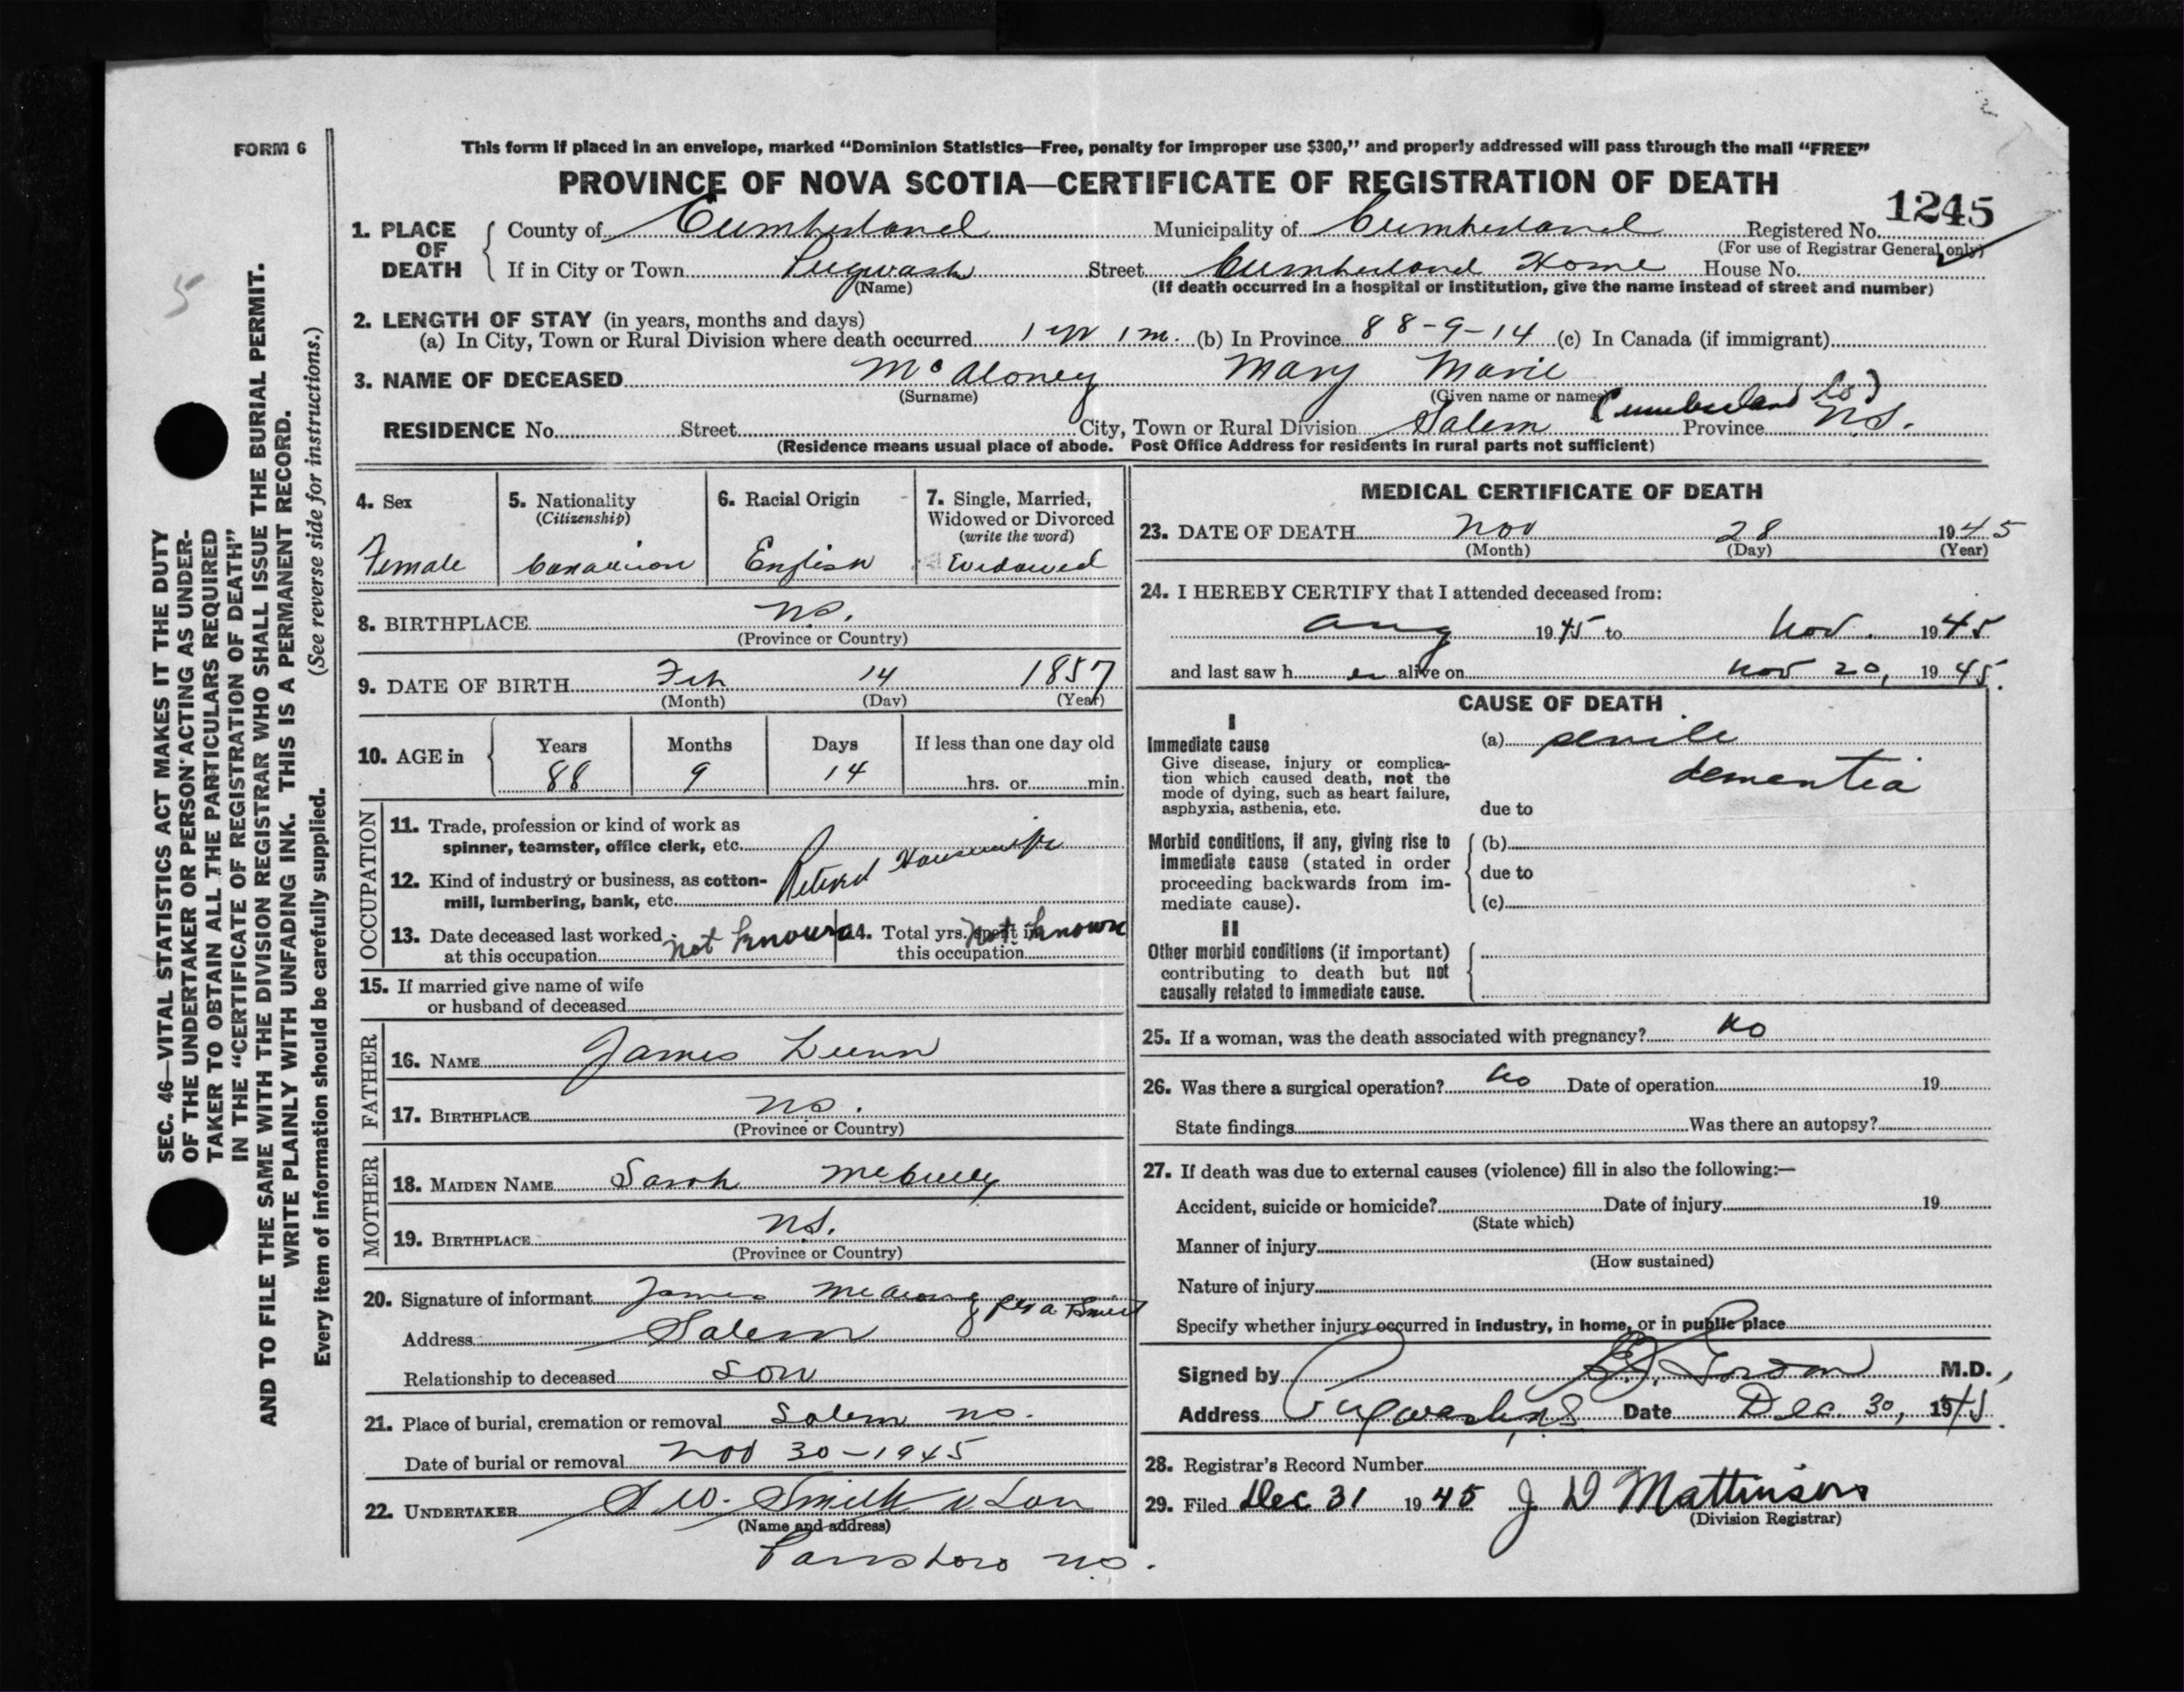 FORM 6
This form if placed in an envelope, marked “Dominion Statistics—Free, penalty for improper use $300,” and properly addressed will pass through the mail “FREE”
PROVINCE OF NOVA SCOTIA—CERTIFICATE OF REGISTRATION OF DEATH
1245
1. PLACE OF DEATH
County of Cumberland Municipality of Cumberland Registered No.
(For use of Registrar General only)
If in City or Town Pugwash Street Cumberland Home House No.
(Name) (If death occurred in a hospital or institution, give the name instead of street and number)
2. LENGTH OF STAY (in years, months and days)
(a) In City, Town or Rural Division where death occurred 1 yr 1 m. (b) In Province 88-9-14 (c) In Canada (if immigrant)
3. NAME OF DECEASED McAloney Mary Marie
(Surname) (Given name or names)
(Cumberland Co)
RESIDENCE No. Street City, Town or Rural Division Salem Province N.S.
(Residence means usual place of abode. Post Office Address for residents in rural parts not sufficient)
4. Sex
Female
5. Nationality
(Citizenship)
Canadian
6. Racial Origin
English
7. Single, Married,
Widowed or Divorced
(write the word)
Widowed
8. BIRTHPLACE N.S.
(Province or Country)
9. DATE OF BIRTH Feb 14 1857
(Month) (Day) (Year)
10. AGE in
Years Months Days If less than one day old
88 9 14 hrs. or min.
OCCUPATION
11. Trade, profession or kind of work as
spinner, teamster, office clerk, etc.
Retired Housewife
12. Kind of industry or business, as cotton-
mill, lumbering, bank, etc.
13. Date deceased last worked
at this occupation not known
14. Total yrs. spent in
this occupation not known
15. If married give name of wife
or husband of deceased
FATHER
16. NAME James Dunn
17. BIRTHPLACE N.S.
(Province or Country)
MOTHER
18. MAIDEN NAME Sarah McCully
19. BIRTHPLACE N.S.
(Province or Country)
20. Signature of informant James McAloney per a
Address Salem
Relationship to deceased Son
21. Place of burial, cremation or removal Salem N.S.
Date of burial or removal Nov 30-1945
22. UNDERTAKER Smith & Son
(Name and address)
Parrsboro N.S.
MEDICAL CERTIFICATE OF DEATH
23. DATE OF DEATH Nov 28 1945
(Month) (Day) (Year)
24. I HEREBY CERTIFY that I attended deceased from:
Aug 1945 to Nov. 1945
and last saw her alive on Nov 20, 1945.
CAUSE OF DEATH
I
Immediate cause
Give disease, injury or complica-
tion which caused death, not the
mode of dying, such as heart failure,
asphyxia, asthenia, etc.
(a) senile
dementia
due to
Morbid conditions, if any, giving rise to
immediate cause (stated in order
proceeding backwards from im-
mediate cause).
(b)
due to
(c)
II
Other morbid conditions (if important)
contributing to death but not
causally related to immediate cause.
25. If a woman, was the death associated with pregnancy? No
26. Was there a surgical operation? No Date of operation 19
State findings Was there an autopsy?
27. If death was due to external causes (violence) fill in also the following:—
Accident, suicide or homicide? Date of injury 19
(State which)
Manner of injury
(How sustained)
Nature of injury
Specify whether injury occurred in industry, in home, or in public place
Signed by M.D.
Address Pugwash, N.S Date Dec. 30, 1945.
28. Registrar's Record Number
29. Filed Dec 31 1945 J D Mattinson
(Division Registrar)
SEC. 46—VITAL STATISTICS ACT MAKES IT THE DUTY
OF THE UNDERTAKER OR PERSON ACTING AS UNDER-
TAKER TO OBTAIN ALL THE PARTICULARS REQUIRED
IN THE “CERTIFICATE OF REGISTRATION OF DEATH”
AND TO FILE THE SAME WITH THE DIVISION REGISTRAR WHO SHALL ISSUE THE BURIAL PERMIT.
WRITE PLAINLY WITH UNFADING INK. THIS IS A PERMANENT RECORD.
Every item of information should be carefully supplied. (See reverse side for instructions.)
5